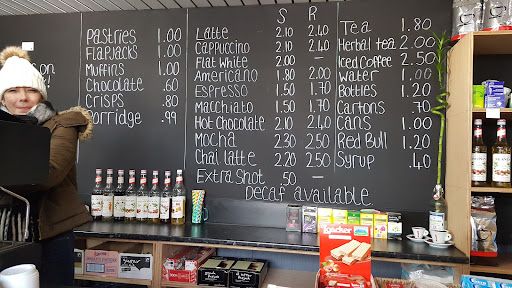 Pastries 1.00
Flapjacks 1.00
Muffins 1.00
Chocolate .60
Crisps .80
Porridge .99
S R
Latte 2.10 2.40
Cappuccino 2.10 2.40
Flat White 2.00 —
Americano 1.80 2.00
Espresso 1.50 1.70
Macchiato 1.50 1.70
Hot Chocolate 2.10 2.40
Mocha 2.30 2.50
Chai latte 2.20 2.50
Extra Shot .50
Decaf available
Tea 1.80
Herbal tea 2.00
Iced Coffee 2.50
Water 1.00
Bottles 1.20
Cartons .70
Cans 1.00
Red Bull 1.20
Syrup .40
Loacker